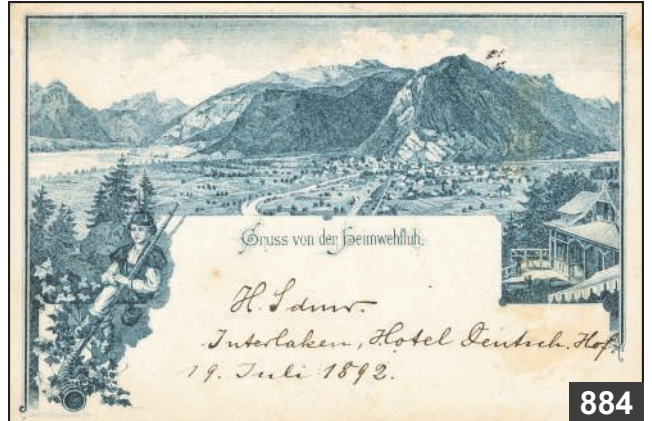 Gruss von der Heimwehfluh.
Interlaken, Hotel Deutsch. Hof.
19. Juli 1892.
884